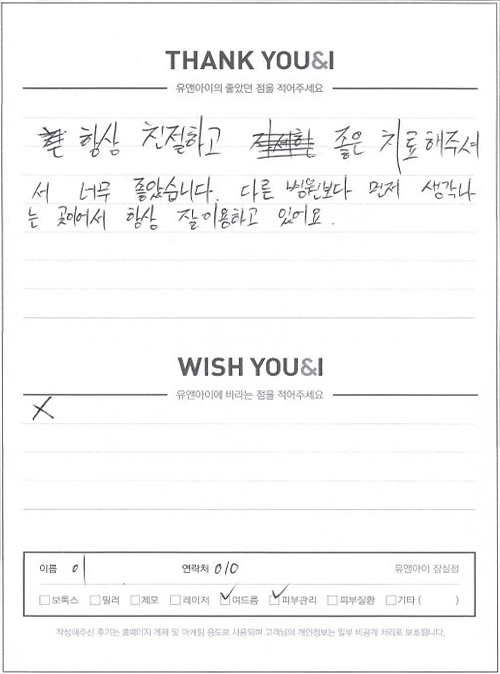 THANK YOU&I
유앤아이의 좋았던 점을 적어주세요
항상 친절하고 자세한 좋은 치료해주셔
서 너무 좋았습니다. 다른 병원보다 먼저 생각나
는 곳이어서 항상 잘 이용하고 있어요.
WISH YOU&I
유앤아이에 바라는 점을 적어주세요
X
이름 이 연락처 010 유앤아이 잠실점
보톡스 필러 제모 레이저 여드름 피부관리 피부질환 기타 ( )
작성해주신 후기는 홈페이지 게재 및 마케팅 용도로 사용되며 고객님의 개인정보는 일부 비공개 처리로 보호됩니다.